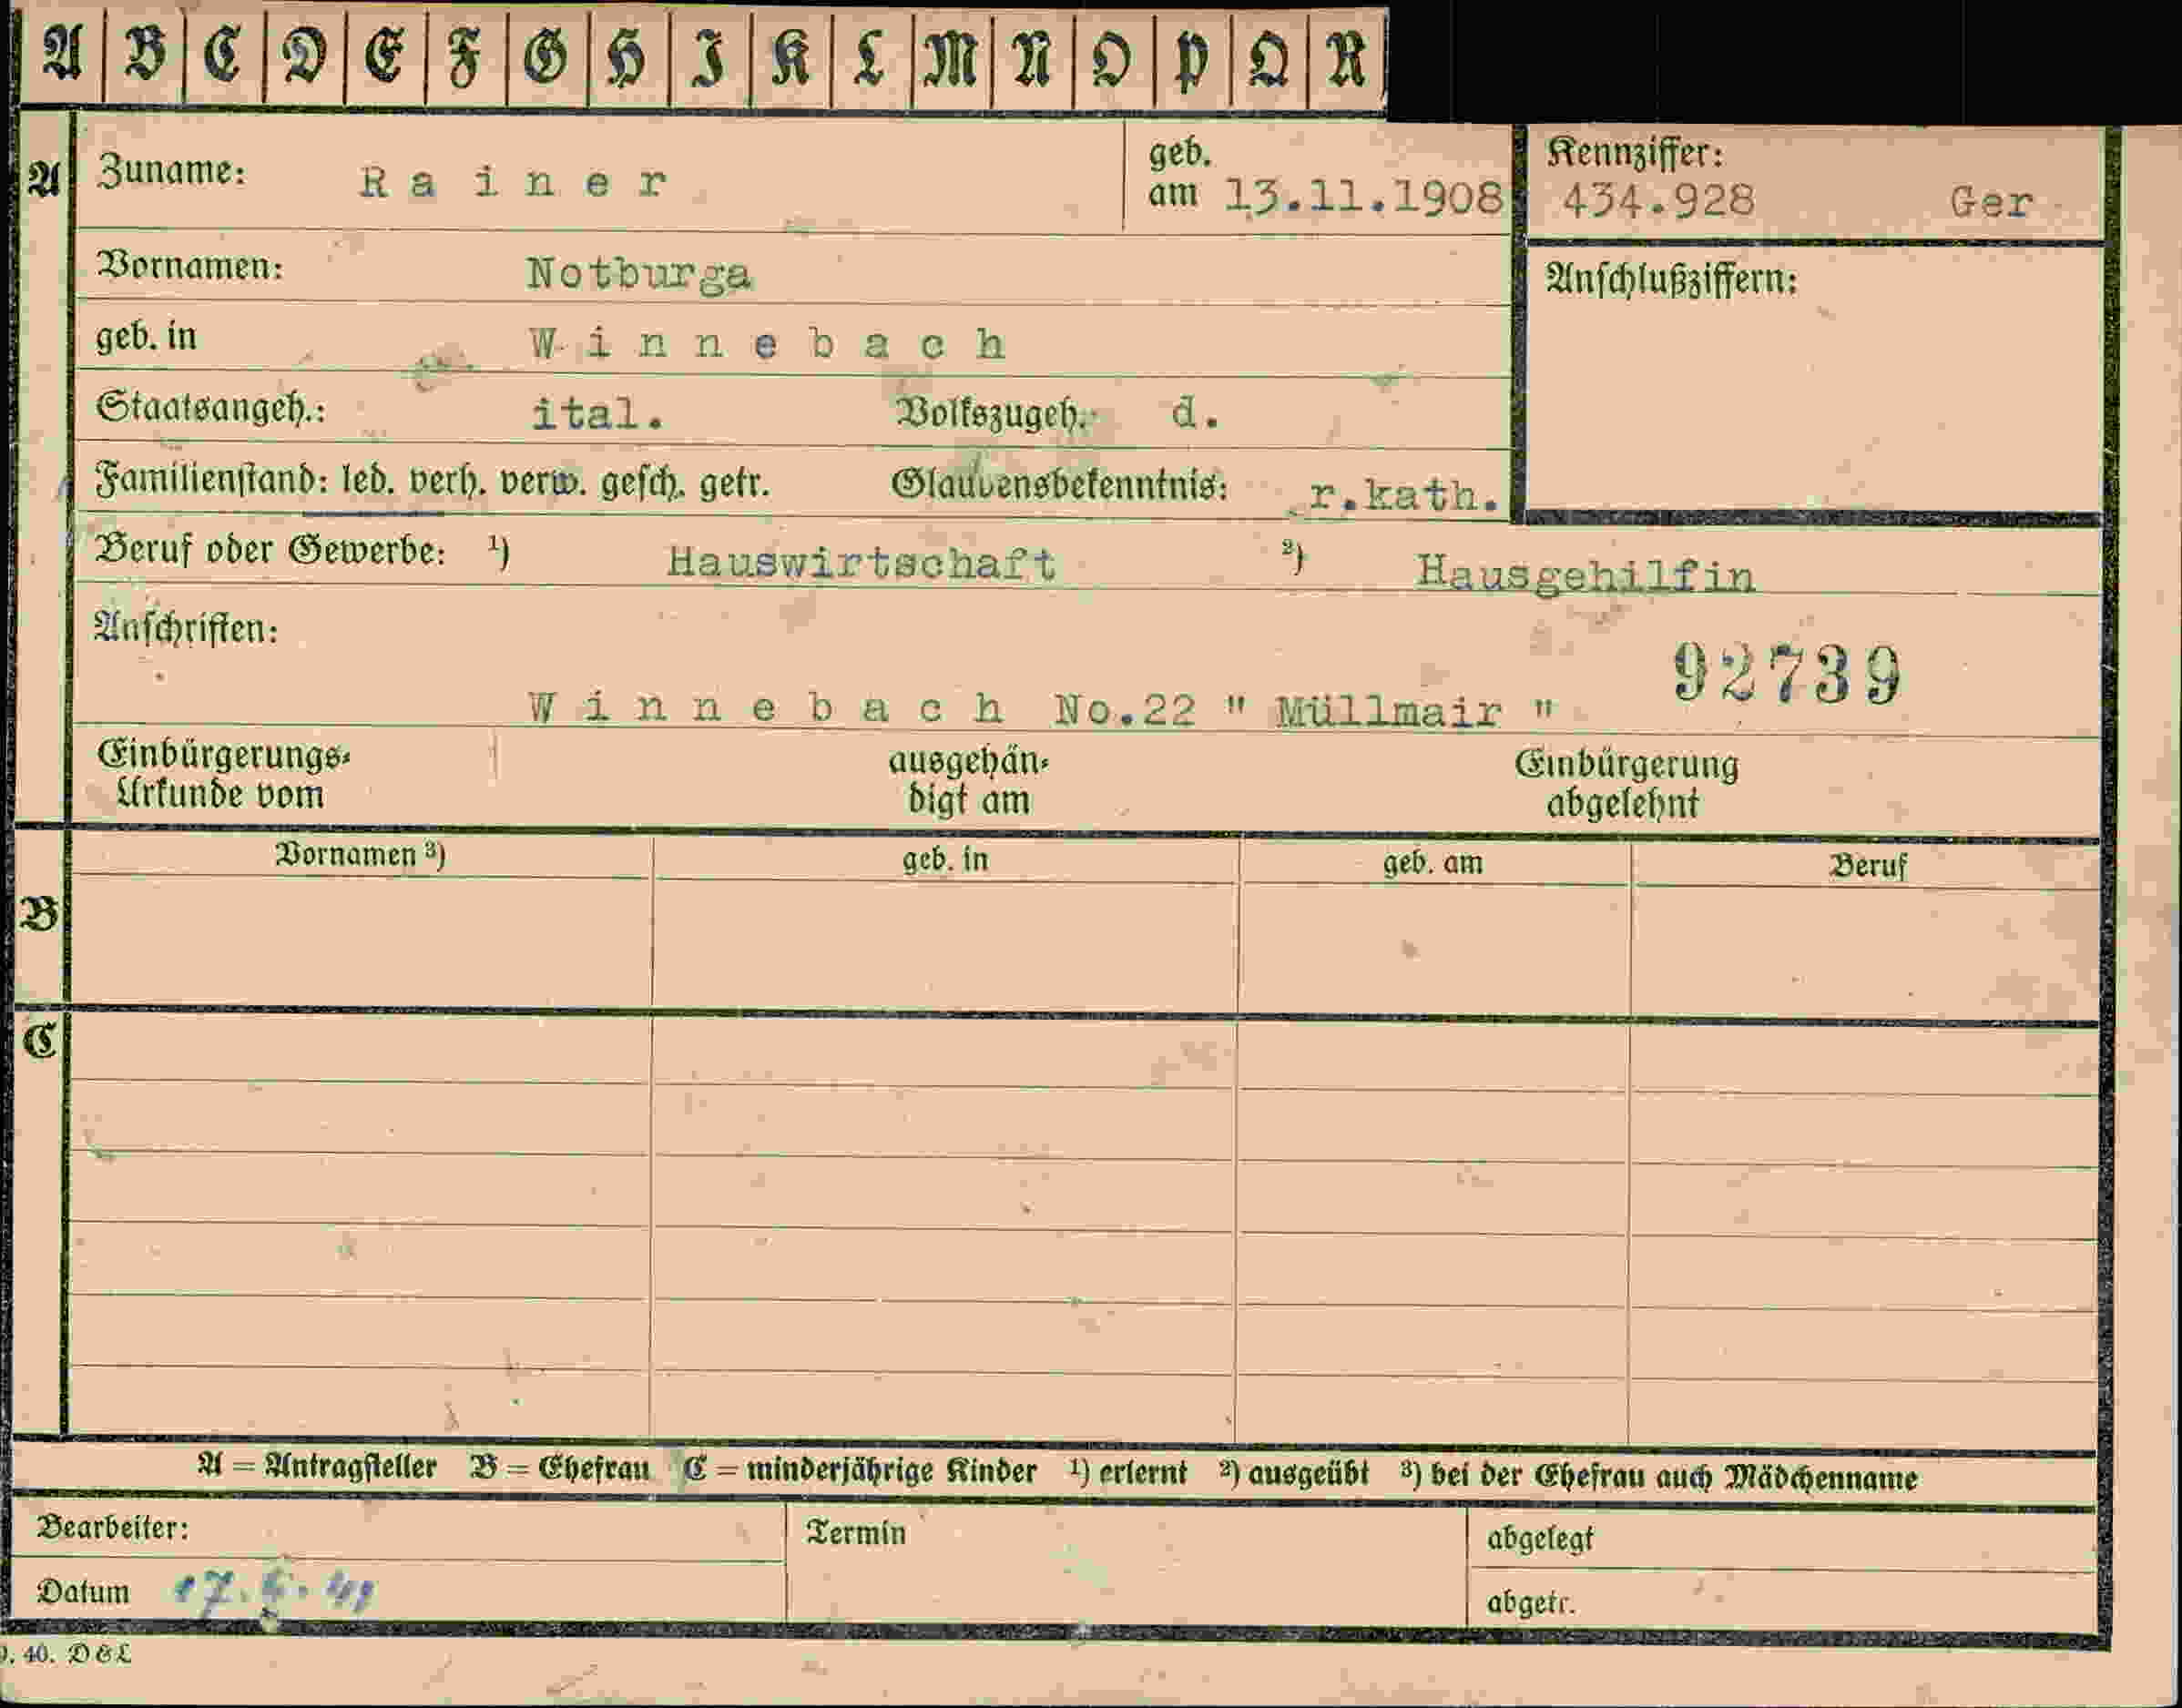 A B C D E F G H I K L M N O P Q R
A Zuname: Rainer geb. am 13.11.1908 Kennziffer: 434.928 Ger
Vornamen: Notburga Anschlußziffern:
geb. in Winnebach
Staatsangeh.: ital. Volkszugeh. d.
Familienstand: led. verh. verw. gesch. getr. Glaubensbekenntnis: r.kath.
Beruf oder Gewerbe: ¹) Hauswirtschaft ²) Hausgehilfin
Anschriften:
92739
Winnebach No.22 " Müllmair "
Einbürgerungs- ausgehän- Einbürgerung
Urkunde vom digt am abgelehnt
Vornamen ³) geb. in geb. am Beruf
B
C
A = Antragsteller B = Ehefrau C = minderjährige Kinder ¹) erlernt ²) ausgeübt ³) bei der Ehefrau auch Mädchenname
Bearbeiter: Termin abgelegt
Datum abgetr.
40. D&L